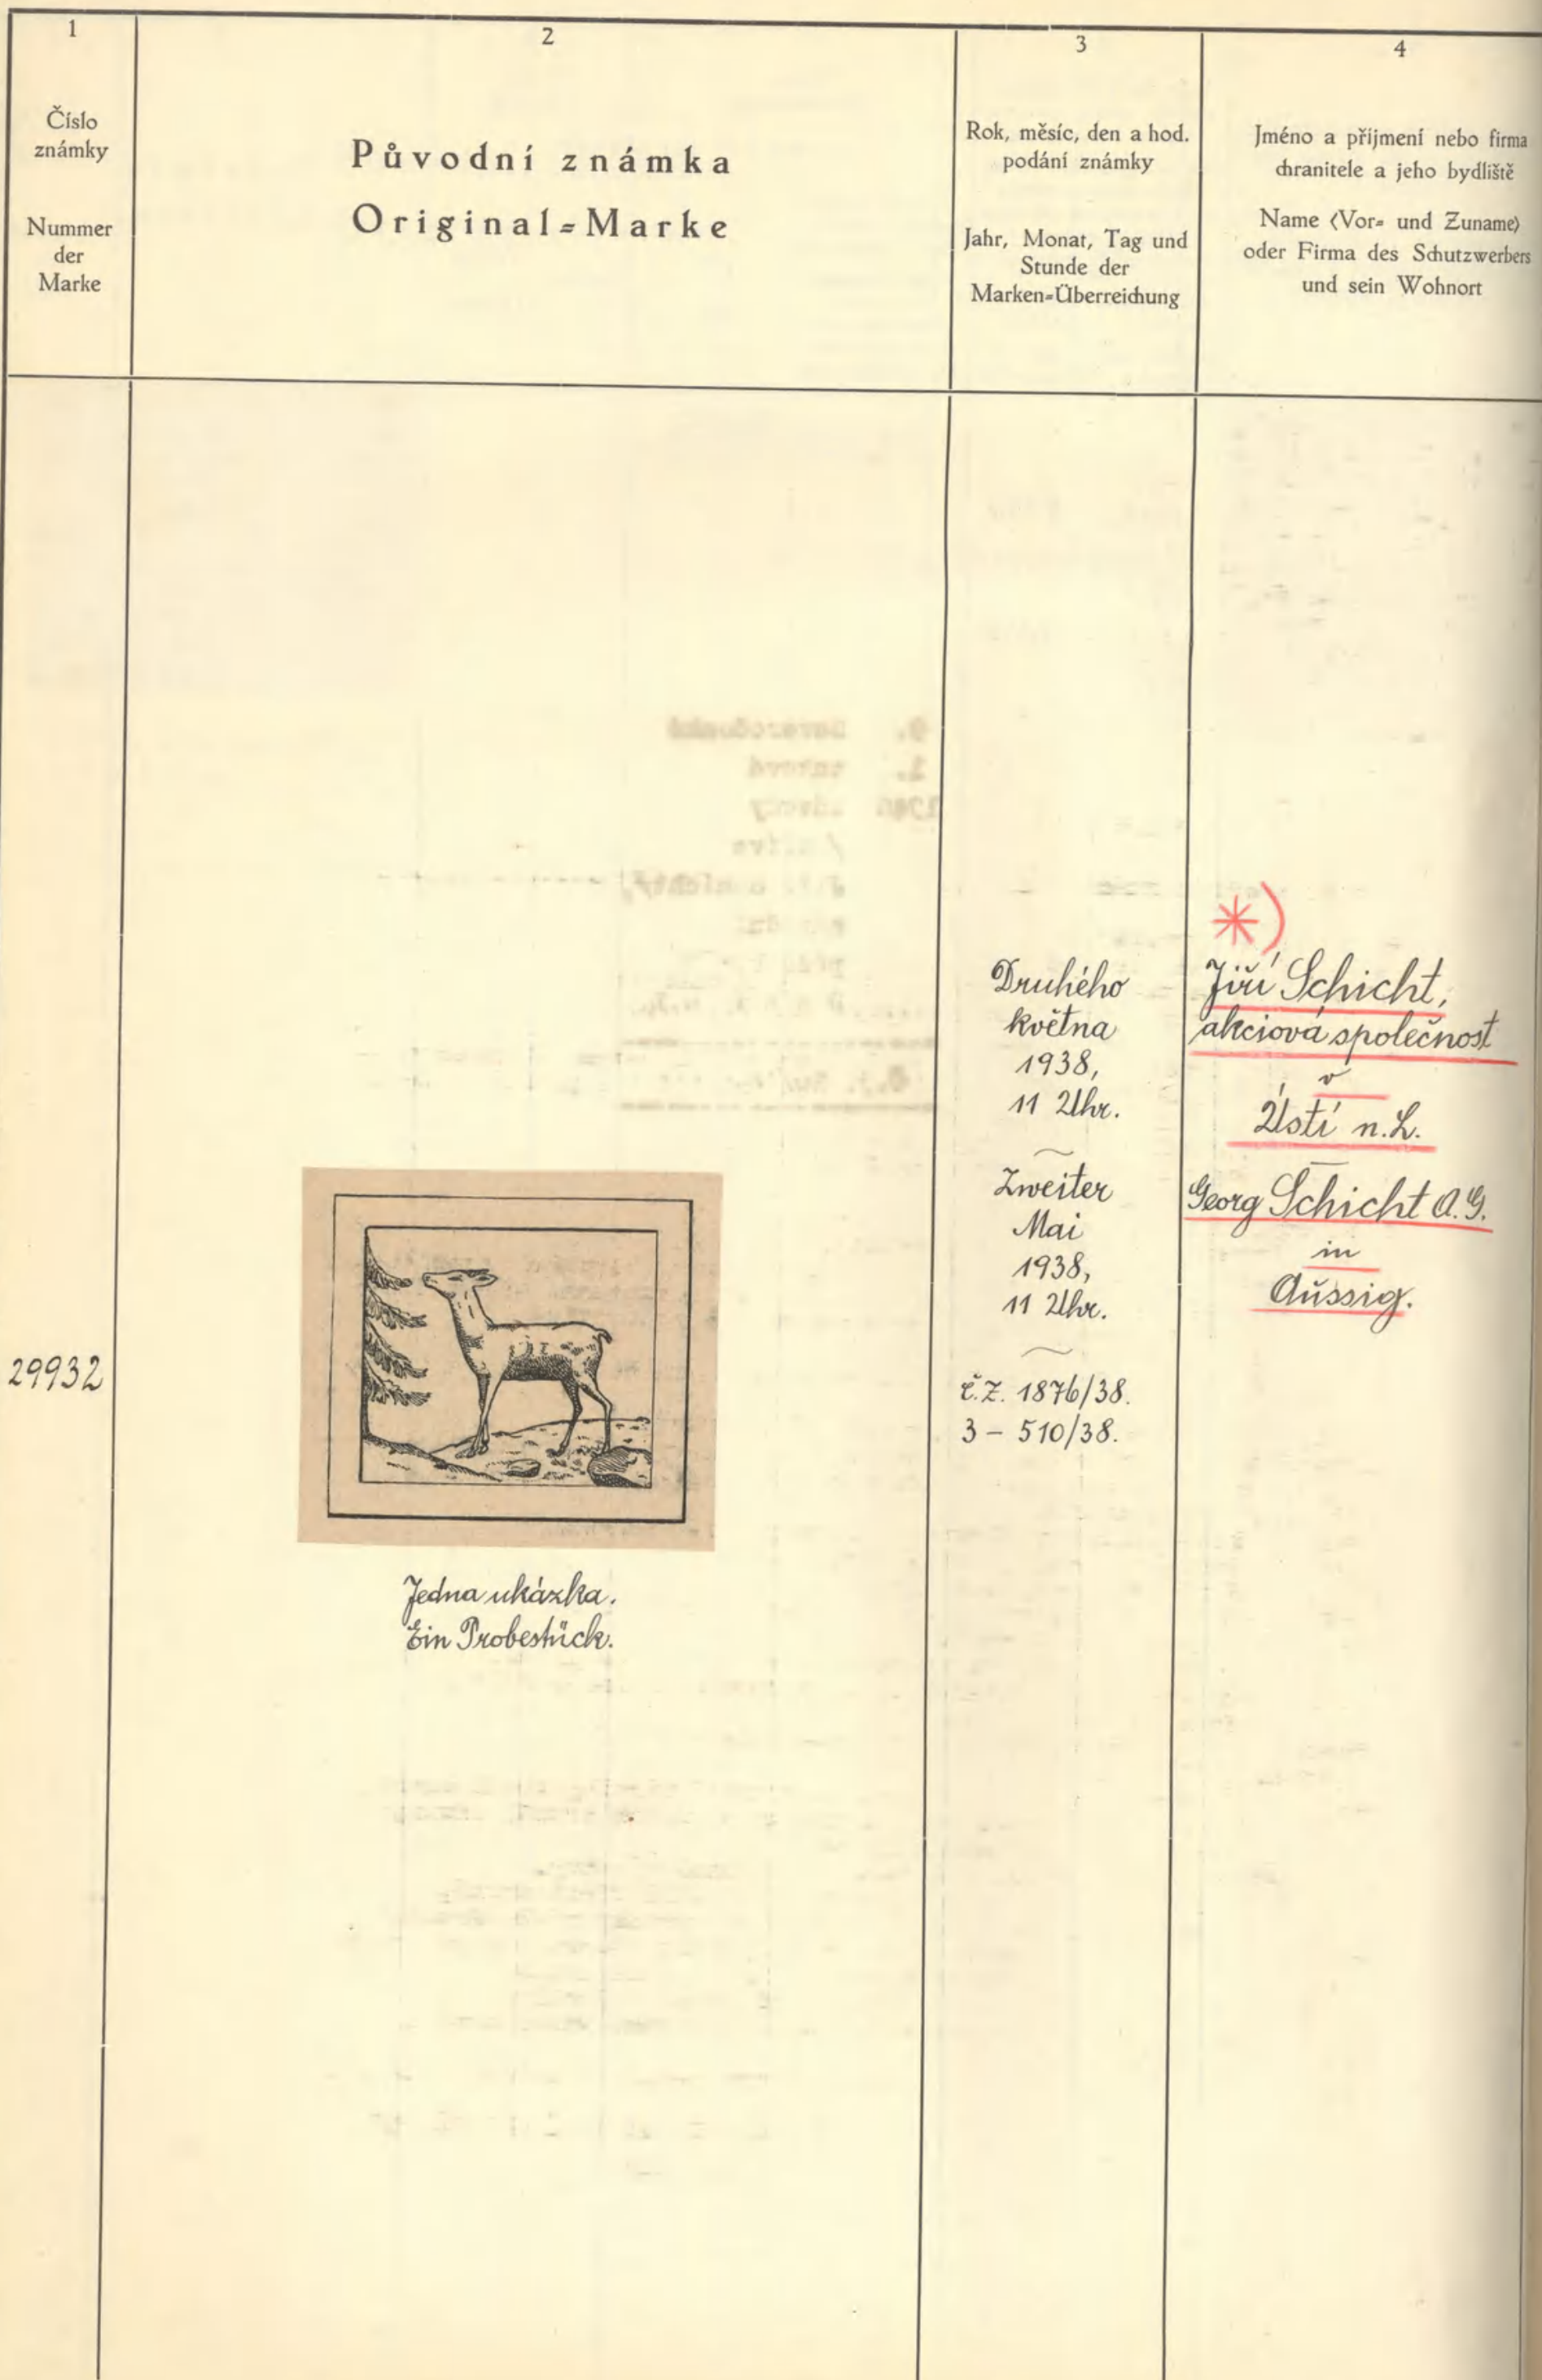 1
Číslo
známky
Nummer
der
Marke
2
Původní známka
Original=Marke
3
Rok, měsíc, den a hod.
podání známky
Jahr, Monat, Tag und
Stunde der
Marken=Überreichung
4
Jméno a příjmení nebo firma
chranitele a jeho bydliště
Name (Vor= und Zuname)
oder Firma des Schutzwerbers
und sein Wohnort
29932
Jedna ukázka.
Ein Probestück.
Druhého
května
1938,
11 Uhr.
Zweiter
Mai
1938,
11 Uhr.
č.Z. 1876/38.
3 – 510/38.
*)
Jiří Schicht,
akciová společnost
v
Ústí n.L.
Georg Schicht A.G.
in
Aussig.